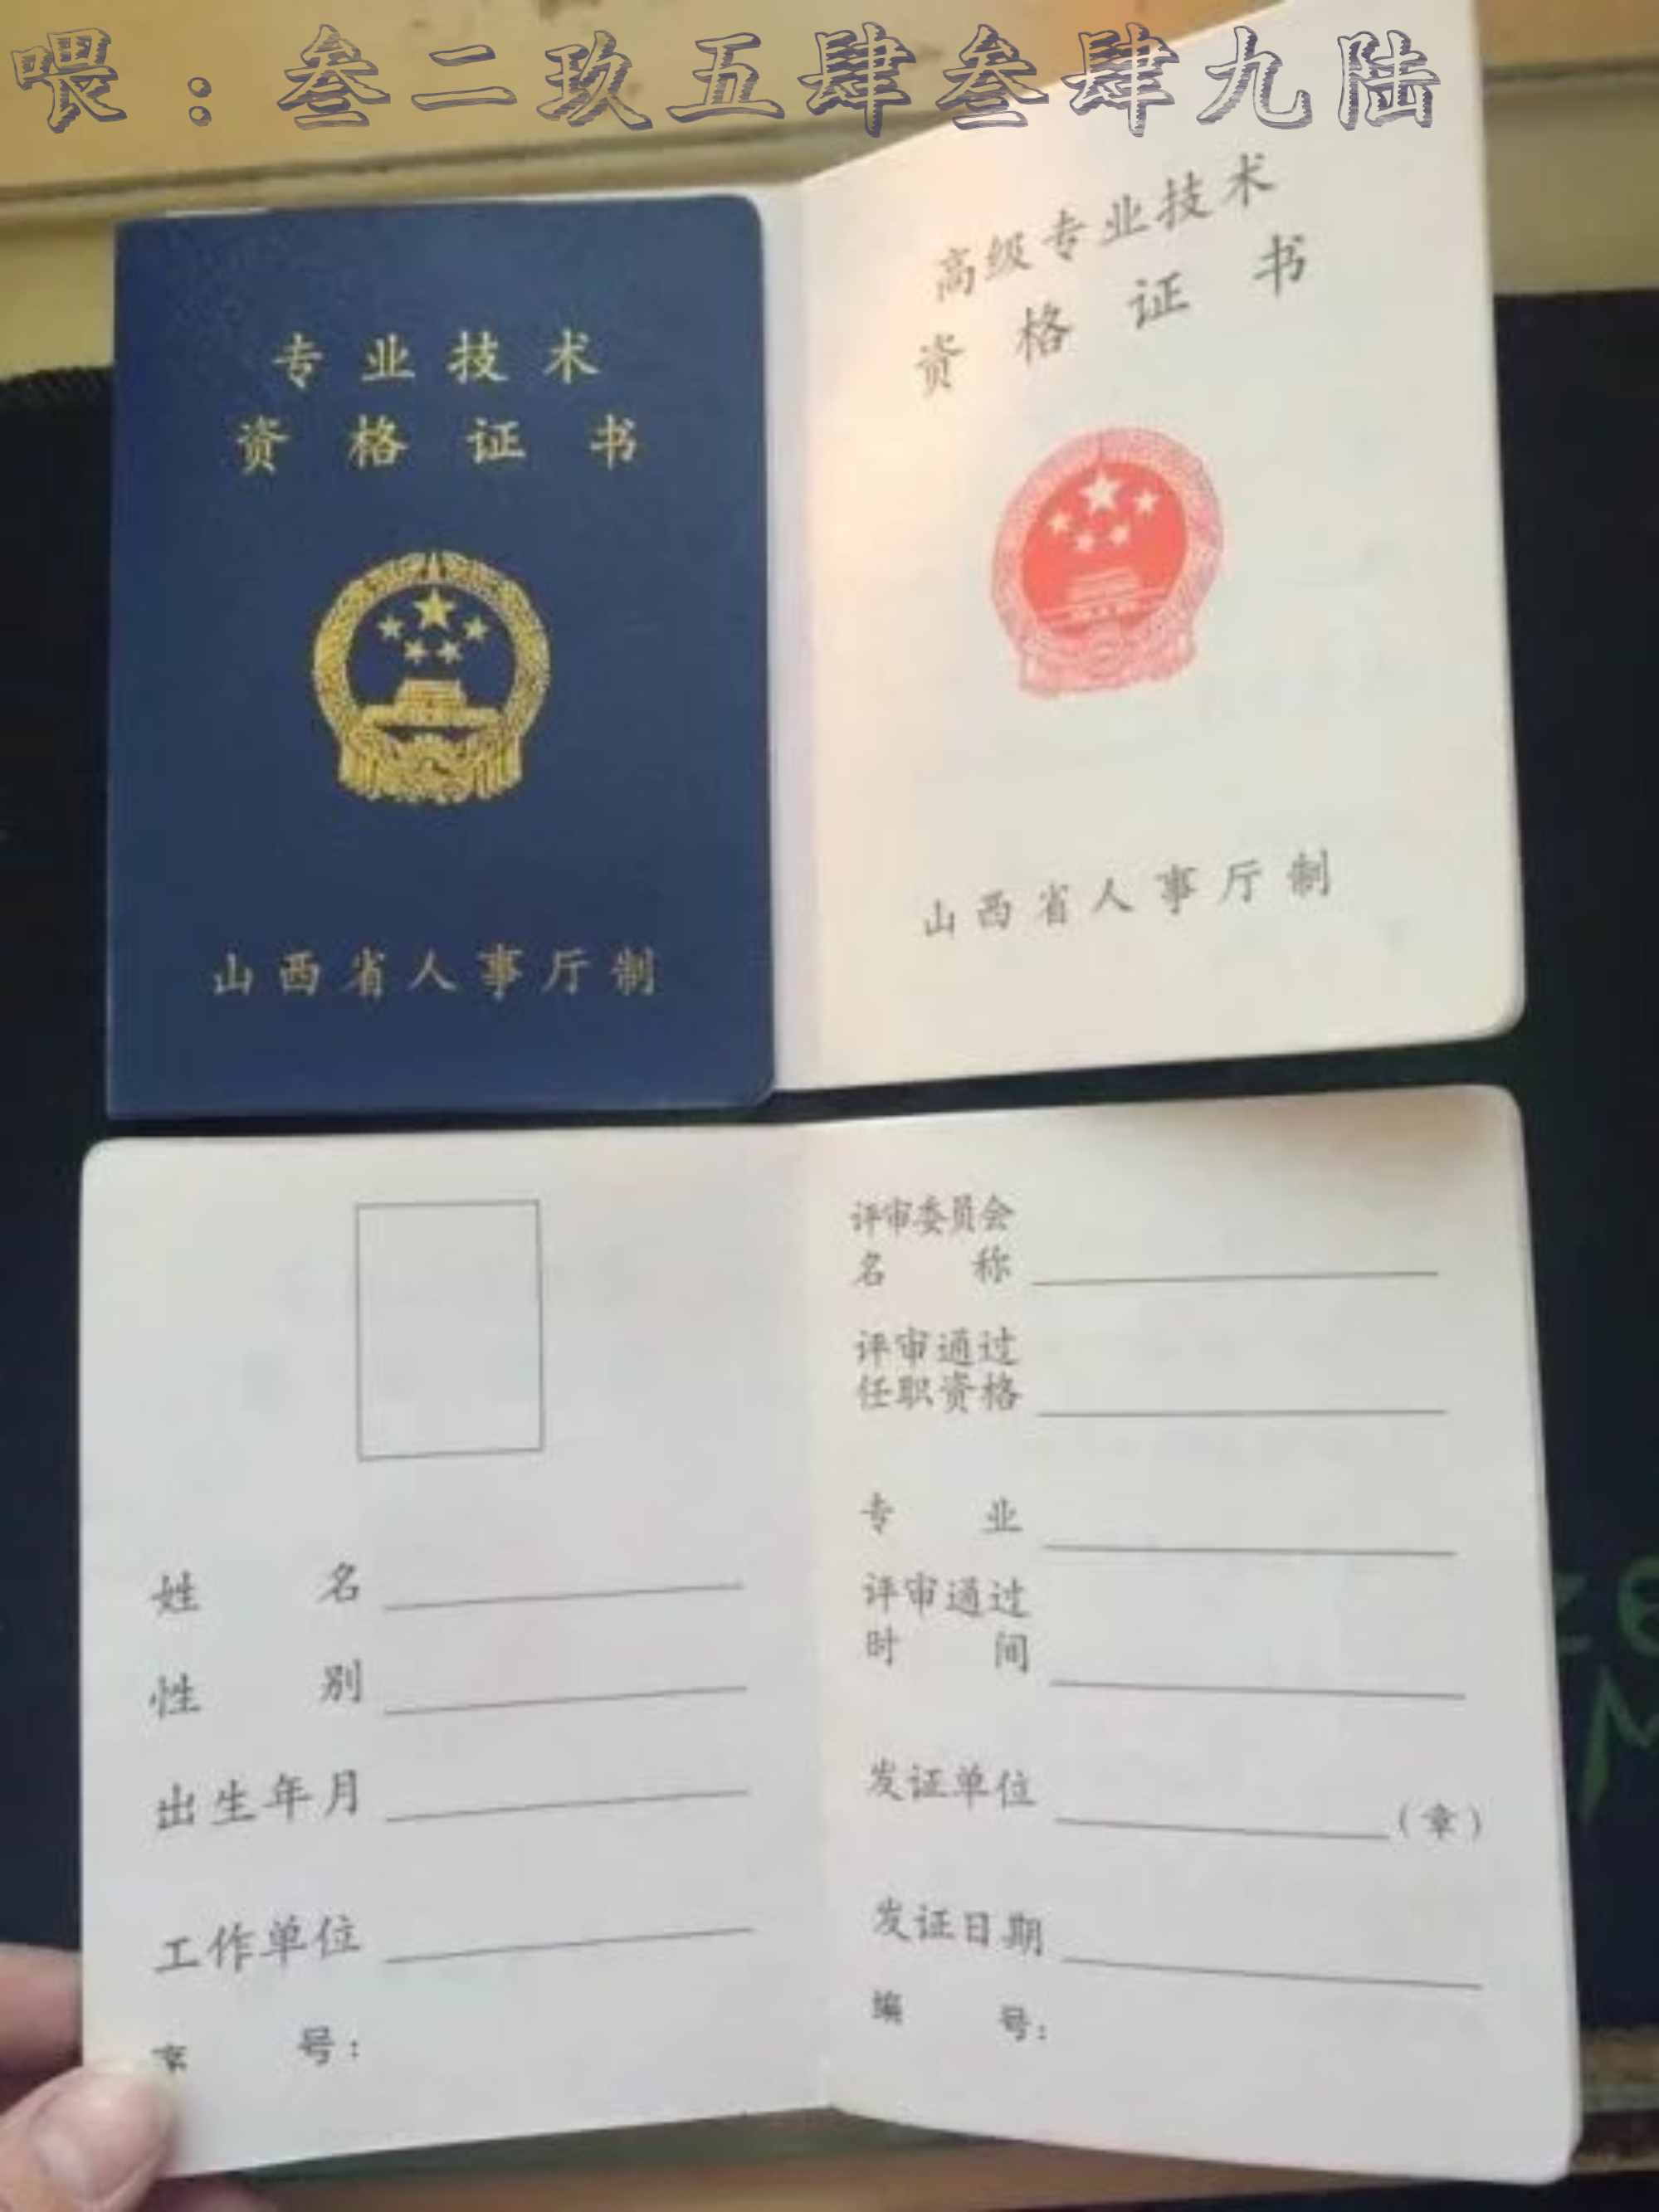 喂：叁二玖五肆叁肆九陆
专业技术
资格证书
山西省人事厅制
高级专业技术
资格证书
山西省人事厅制
姓名
性别
出生年月
工作单位
号：
评审委员会
名称
评审通过
任职资格
专业
评审通过
时间
发证单位（章）
发证日期
编号：